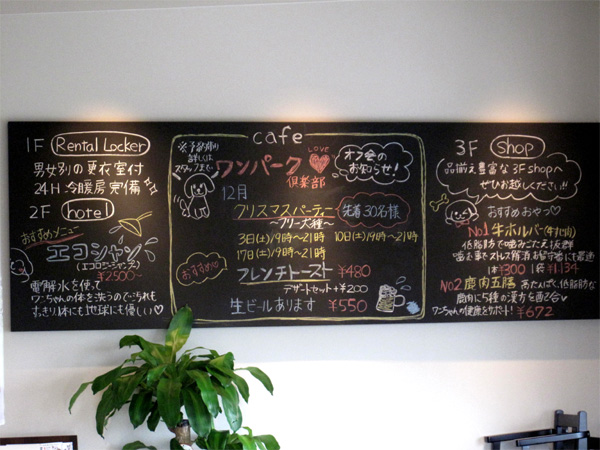 1F Rental Locker
男女別の更衣室付
24H 冷暖房完備
2F hotel
おすすめメニュー
エコシャン
(エコロジーシャンプー)
¥2500~
電解水を使って
ワンちゃんの体を洗うので汚れも
すっきり体にも地球にも優しい♡
cafe
※予約制
詳しくは
スタッフまで
ワンパーク
LOVE
倶楽部
オフ会の
お知らせ!
12月
クリスマスパーティー
~フリー犬種~
先着30名様
3日(土)/19時~21時 10日(土)/19時~21時
17日(土)/19時~21時
おすすめ
フレンチトースト ¥480
デザートセット+¥200
生ビールあります ¥550
3F shop
品揃え豊富な3Fshopへ
ぜひお越しください!!
おすすめおやつ♡
No1 牛ホルバー(牛小肉)
低脂肪で噛みごたえ抜群
噛む事でストレス解消お留守番にも最適
1本¥300 1袋¥1134
No2 鹿肉五膳 高たんぱく低脂肪な
鹿肉に5種の漢方を配合♡
ワンちゃんの健康をサポート! ¥672